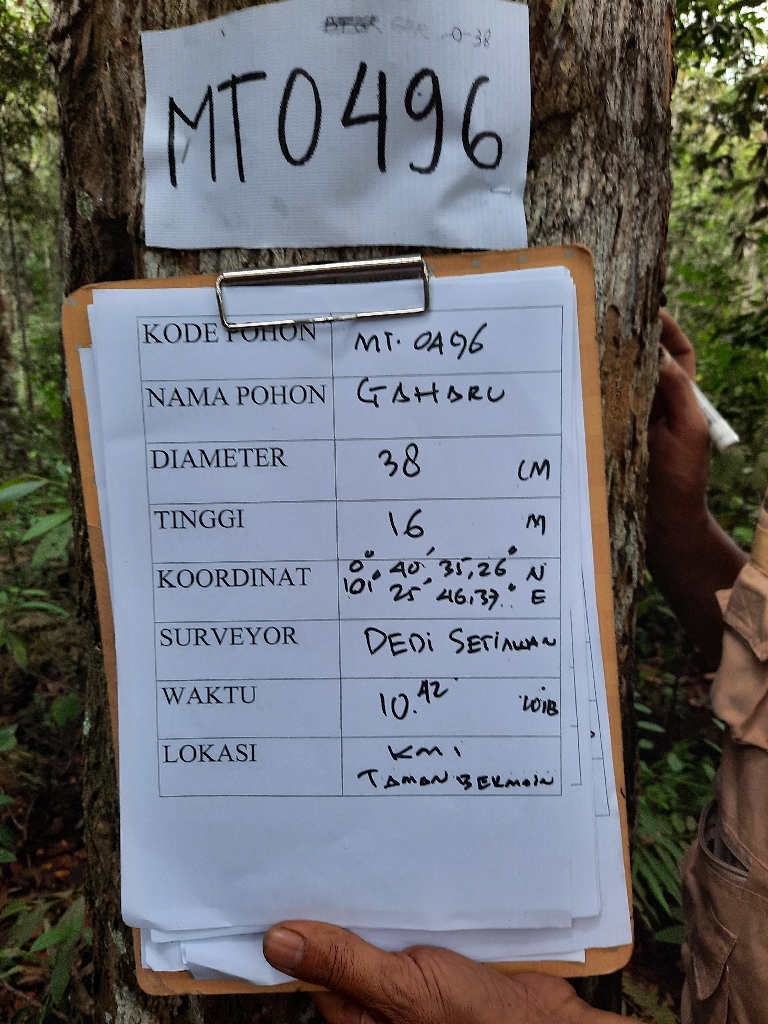 GHR -0-38
MT0496
KODE POHON MT. 0496
NAMA POHON GAHARU
DIAMETER 38 CM
TINGGI 16 M
KOORDINAT 0° 40' 35,26" N
101° 25' 46,37" E
SURVEYOR DEDI SETIAWAN
WAKTU 10.42 WIB
LOKASI KMI
TAMAN BERMAIN